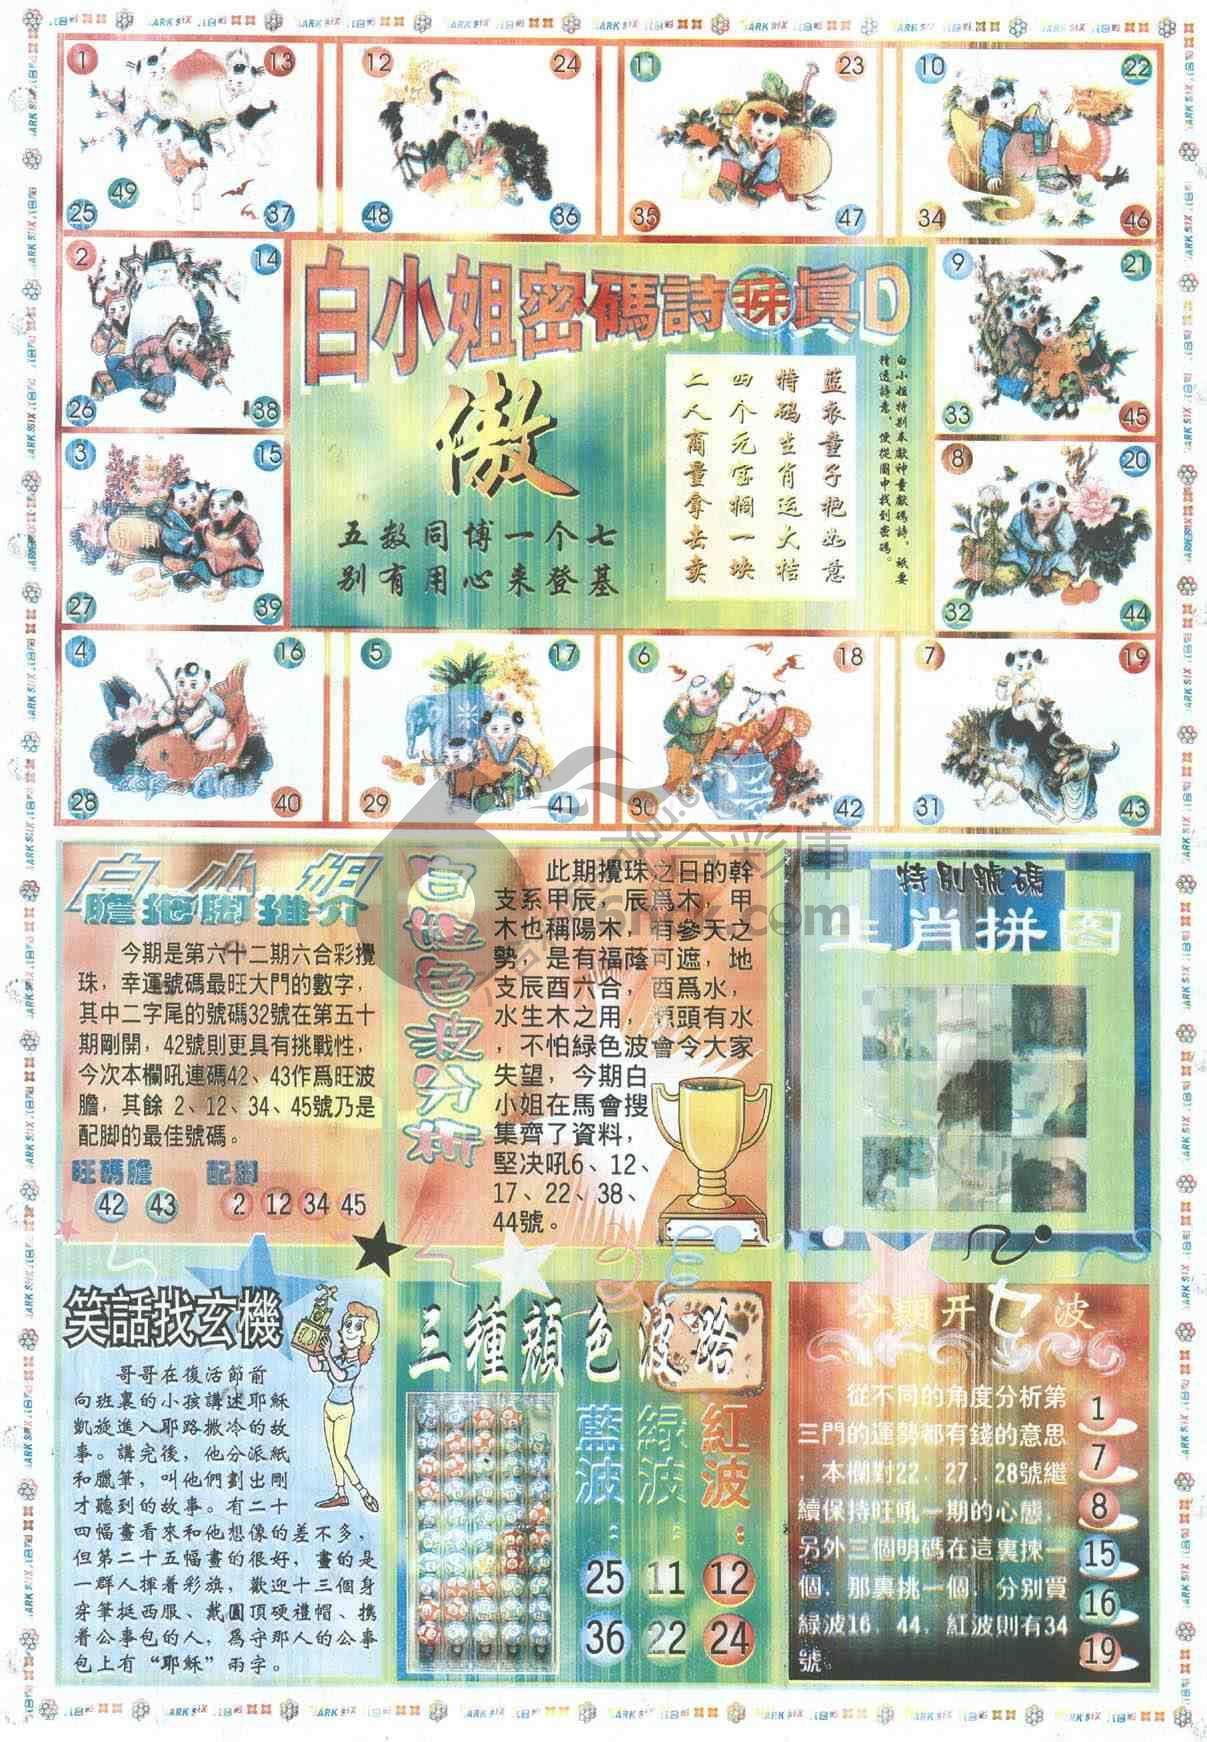 1 13 12 24 11 23 10 22
49
25 37 48 36 35 47 34 46
2 14
26 38
3 15
27 39
9 21
33 45
8 20
32 44
白小姐密碼詩 眞D
傲
五数同博一个七
别有用心来登基
蓝衣童子抱如意
特码生肖运大桔
四个元宝搁一块
二人商量拿去卖
白小姐特别奉獻神童獻碼詩，祇要
種透詩意，便從圖中找到密碼。
4 16 5 17 6 18 7 19
28 40 29 41 30 42 31 43
白小姐
膽拖脚推介
今期是第六十二期六合彩攪
珠，幸運號碼最旺大門的數字，
其中二字尾的號碼32號在第五十
期剛開，42號則更具有挑戰性，
今次本欄吼連碼42、43作爲旺波
膽，其餘 2、12、34、45號乃是
配脚的最佳號碼。
旺碼膽 配脚
42 43 2 12 34 45
白姐色波分析
此期攪珠之日的幹
支系甲辰，辰爲木，甲
木也稱陽木，有參天之
勢，是有福蔭可遮，地
支辰酉六合，酉爲水，
水生木之用，源頭有水
，不怕綠色波會令大家
失望，今期白
小姐在馬會搜
集齊了資料，
堅決吼6、12、
17、22、38、
44號。
特别號碼
生肖拼图
笑話找玄機
哥哥在復活節前
向班裏的小孩講述耶穌
凱旋進入耶路撒冷的故
事。講完後，他分派紙
和臘筆，叫他們劃出剛
才聽到的故事。有二十
四幅畫看來和他想像的差不多，
但第二十五幅畫的很好，畫的是
一群人揮着彩旗，歡迎十三個身
穿筆挺西服、戴圓頂硬禮帽、携
着公事包的人，爲守那人的公事
包上有“耶穌”兩字。
三種顔色波路
藍波：
25
36
緑波：
11
22
紅波：
12
24
今期开七波
從不同的角度分析第
三門的運勢都有錢的意思
，本欄對22、27、28號繼
續保持旺吼一期的心態，
另外三個明碼在這裏揀一
個，那裏挑一個，分别買
綠波16，44，紅波則有34
號。
1
7
8
15
16
19